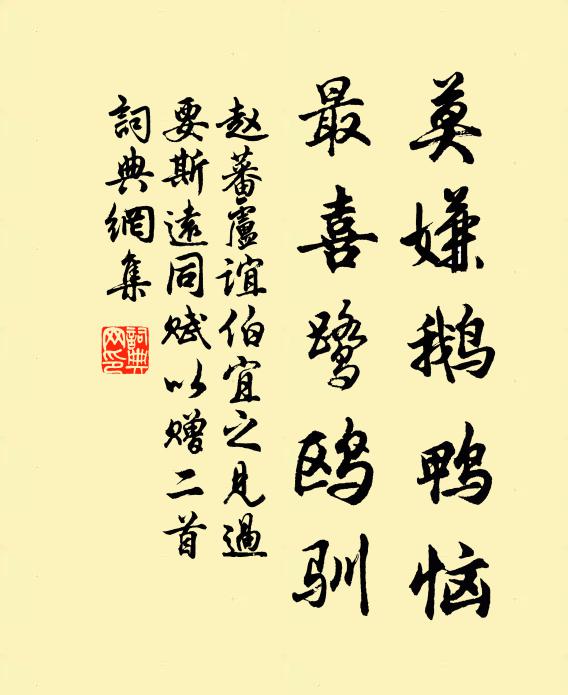 莫嫌鹅鸭恼
最喜鹭鸥驯
赵蕃卢谊伯宜之见過
要斯遠同赋以赠二首
詞典網集
詞典
网印